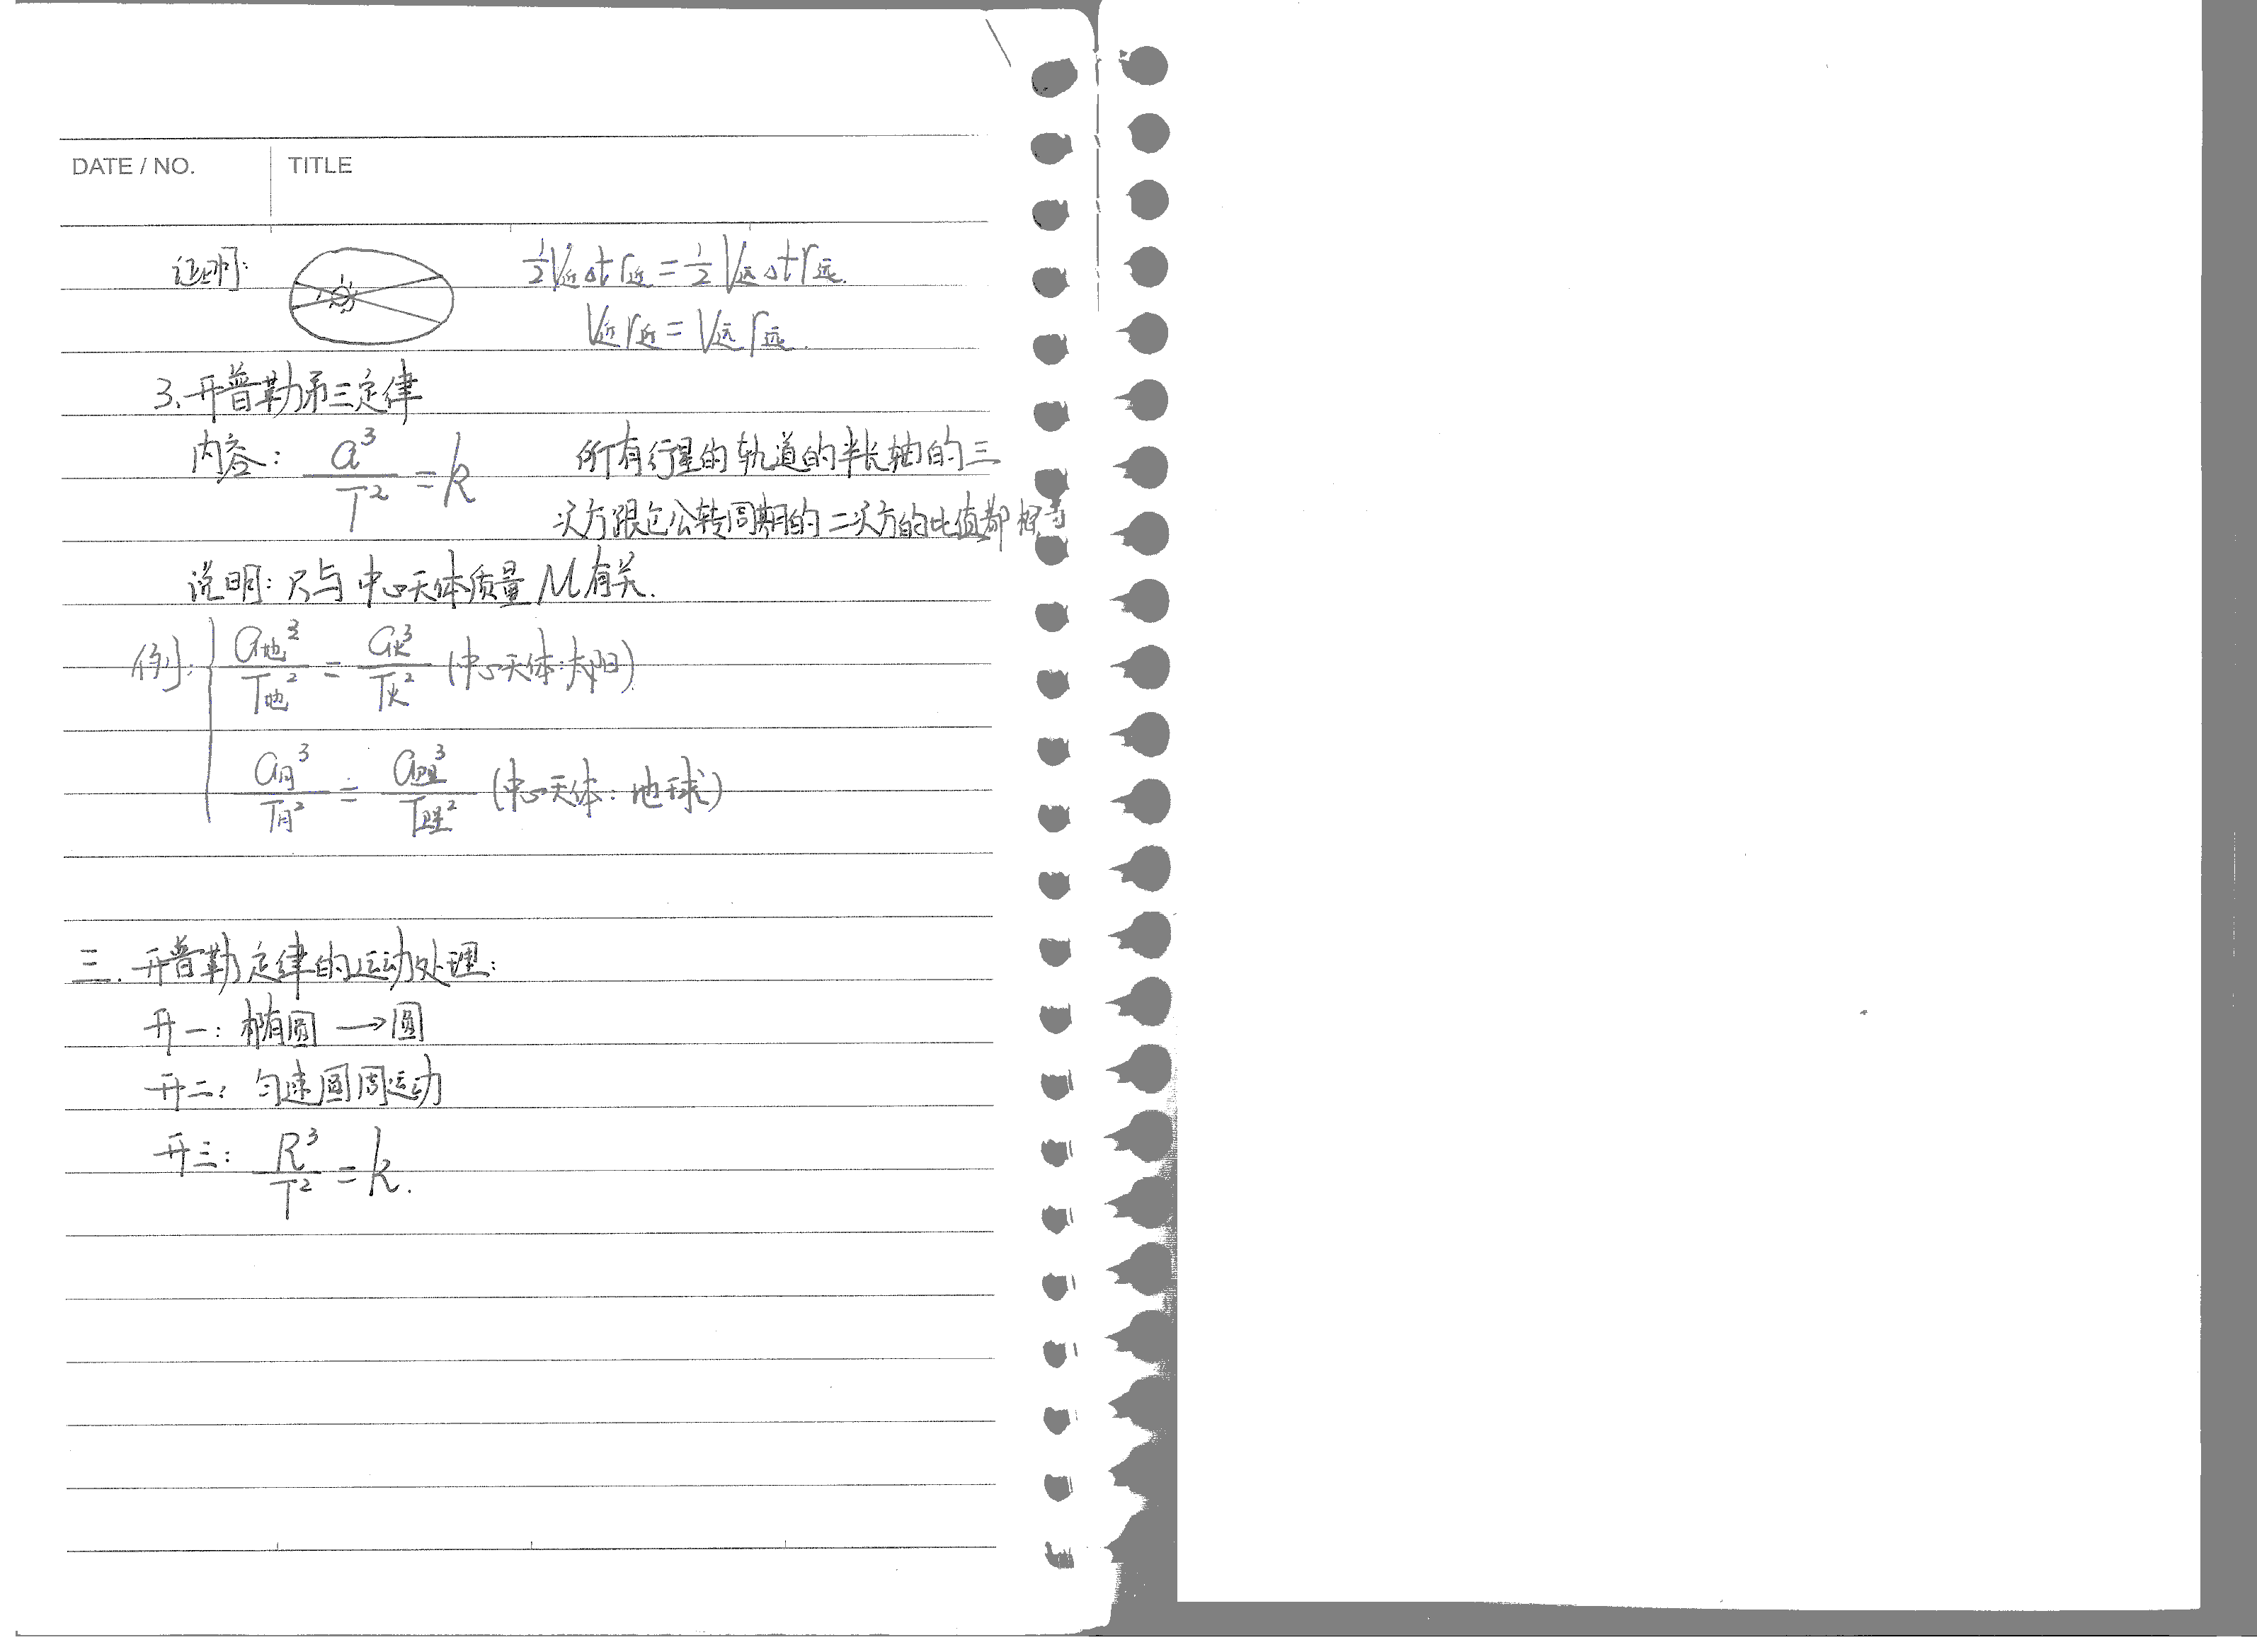 DATE / NO. TITLE
证明: ½V近Δt r近 = ½V远Δt r远.
V近r近 = V远r远.
3、开普勒第三定律
内容: a³/T² = k 所有行星的轨道的半长轴的三
次方跟它公转周期的二次方的比值都相等
说明: 只与中心天体质量M有关.
例: { a地³/T地² = a火³/T火² (中心天体:太阳)
a月³/T月² = a卫星³/T卫星² (中心天体: 地球)
三. 开普勒定律的运动处理:
开一: 椭圆 → 圆
开二: 匀速圆周运动
开三: R³/T² = k.